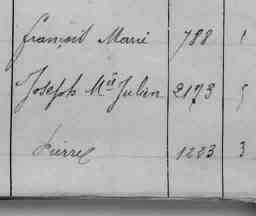 françois Marie 788 1
Joseph Mie Julien 2173
Pierre 1283 3